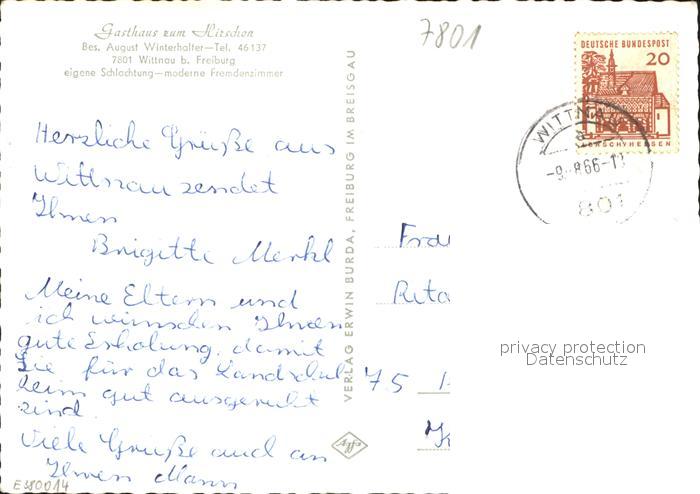 Gasthaus zum Hirschen
Bes. August Winterhalter—Tel. 46137
7801 Wittnau b. Freiburg
eigene Schlachtung—moderne Fremdenzimmer
7801
DEUTSCHE BUNDESPOST
20
LORSCH/HESSEN
WITTNAU
a
-9.-8.66-1
801
Herzliche Grüße aus
Wittnau sendet
Ihnen
Brigitte Merkl
Meine Eltern und
ich wünschen Ihnen
gute Erholung, damit
Sie für das Landschul
heim gut ausgeruht
sind.
Viele Grüße auch an
Ihren Mann
VERLAG ERWIN BURDA, FREIBURG IM BREISGAU
Agfa
Frau
Rita
75
privacy protection
Datenschutz
E380014